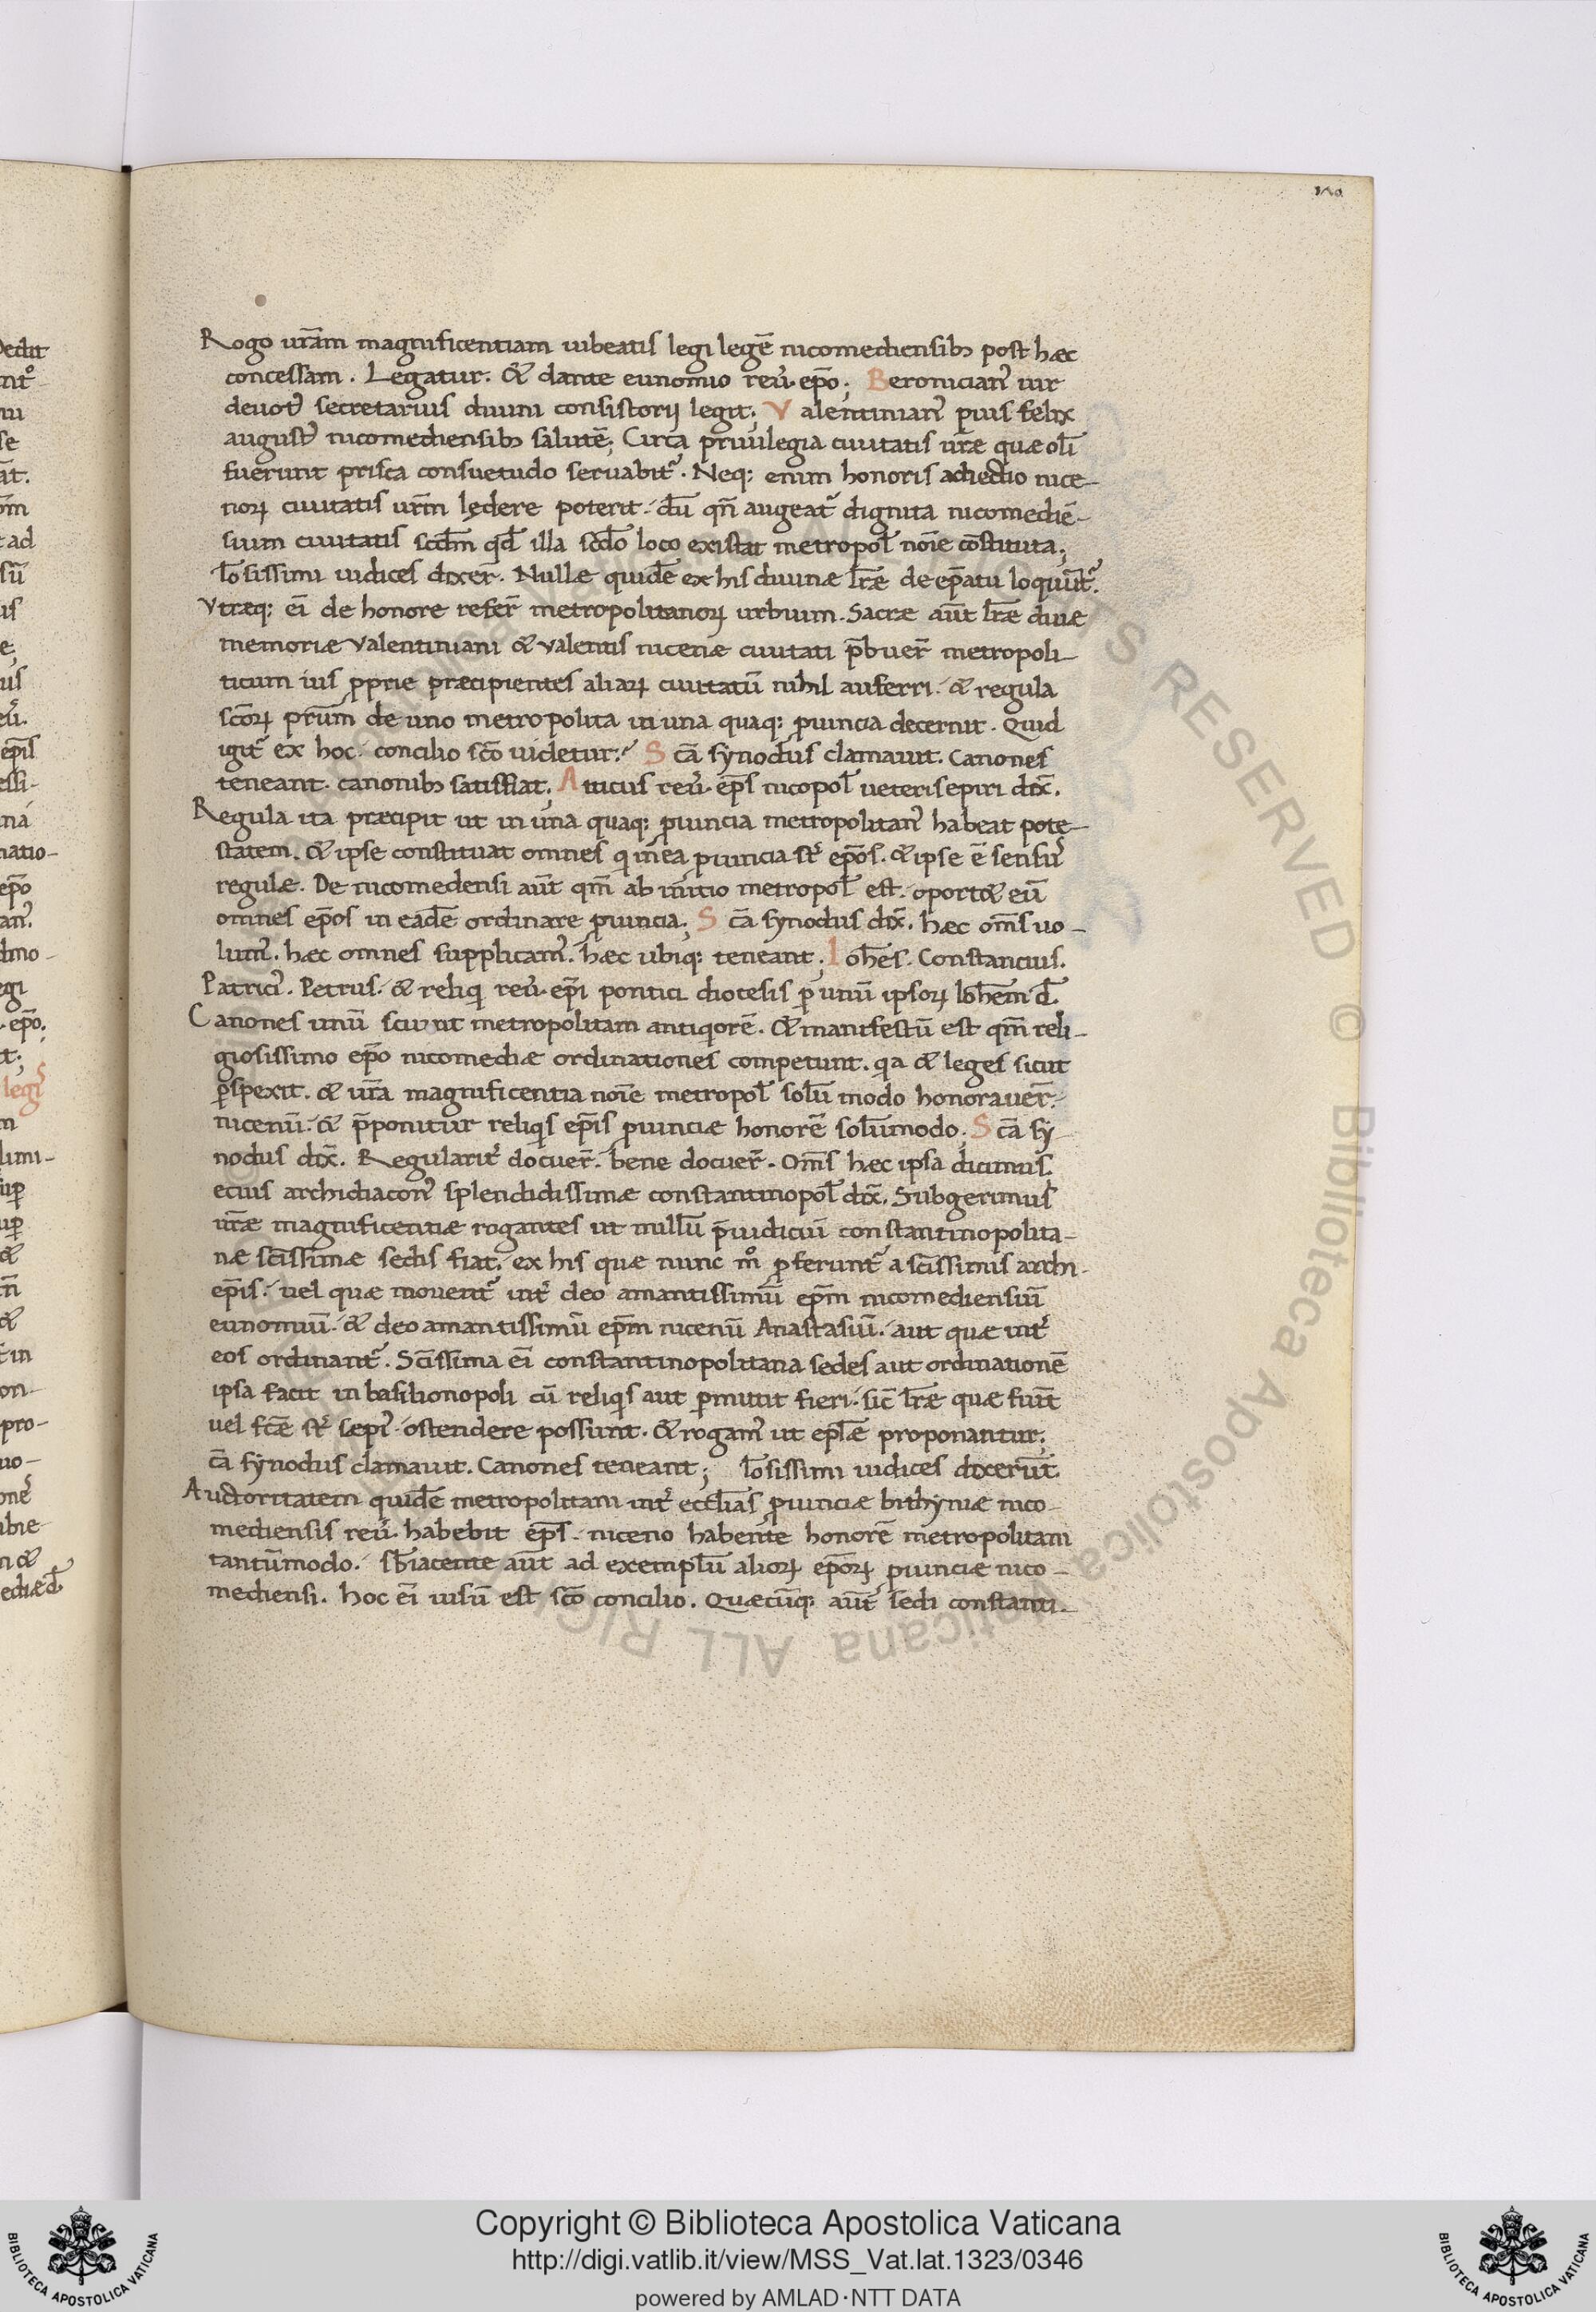 Rogo ur̄am magnificentiam iubeatis legi legē nicomediensib; post hæc
concessam. Legatur. & dante eunomio reu̓. ep̄o; Beronician᾿ uir
deuot᾿ secretarius diuini consistorij legit; Valentinian᾿ pius felix
august᾿ nicomediensib; salutē; Circa priuilegia ciuitatis ur̄æ quæ olī
fuerunt prisca consuetudo seruabit᾿. Neq; enim honoris adiectio nice-
noꝝ ciuitatis ur̄m lędere poterit. dū qn̄ augeat᾿ dignita nicomediē-
sium ciuitatis scd̄m qd̄ illa scd̄o loco existat metropol̄ noīe cōstituta;
l̄osissimi iudices dixer̄. Nullæ quidē ex his diuinæ lr̄æ de ep̄atu loquūt᾿.
Vtræq; eī de honore refer̄t metropolitanoꝝ urbium. Sacræ aūt lr̄æ diuæ
memoriæ valentiniani & valentis nicenæ ciuitati p̄buer̄ metropoli-
ticum ius ꝓprie præcipientes aliaꝝ ciuitatū nihil auferri. & regula
sc̄oꝝ pr̄um de uno metropolita in una quaq; ꝓuincia decernit. Quid
igit᾿ ex hoc concilio sc̄o uidetur? Sc̄a synodus clamauit. Canones
teneant. canonib; satisfiat; Atticus reu̓. ep̄s nicopol̄ ueteris epiri dix̄.
Regula ita præcipit ut in una quaq; ꝓuincia metropolitan᾿ habeat pote-
statem. & ipse constituat omnes qi in ea ꝓuincia st̄ ep̄os. & ipse ē sensus
regulæ. De nicomedensi aūt qm̄ ab initio metropol̄ est. oport& eū
omnes ep̄os in eadē ordinare ꝓuincia; Sc̄a synodus dix̄. hæc om̄s uo-
lum᾿. hæc omnes supplicam᾿. hæc ubiq; teneant; Ioh̄es. Constancius.
Patrici᾿. Petrus. & reliqi reu̓. ep̄i pontici diocesis ꝑ unū ipsoꝝ Ioh̄em d̄.
Canones unū sciunt metropolitam antiqorē. & manifestū est qm̄ reli-
giosissimo ep̄o nicomediæ ordinationes competunt. qia & leges sicut
ꝑspexit. & ur̄a magnificentia noīe metropol̄ solū modo honorauer̄.
nicenū. & p̄ponitur reliqis ep̄is ꝓuinciæ honorē solūmodo; Sc̄a sy-
nodus dix̄. Regularit᾿ docuer̄. bene docuer̄. Om̄s hæc ipsa dicimus;
ecius archidiacon᾿ splendidissimæ constantinopol̄ dix̄. Subgerimus
ur̄æ magnificentiæ rogantes ut nullū p̄iudiciū constantinopolita-
næ sc̄issimæ sedis fiat. ex his quæ nunc m̊ ꝓferunt᾿ a sc̄issimis archi-
ep̄is. uel quæ mouent᾿ int᾿ deo amantissimū ep̄m nicomediensiū
eunomiū. & deo amantissimū ep̄m nicenū Anastasiū. aut quæ int᾿
eos ordinant᾿. Sc̄issima eī constantinopolitana sedes aut ordinationē
ipsa facit in basilionopoli cū reliqis aut ꝑmittit fieri. sic̄ lr̄æ quæ fuīt
uel fc̄æ st̄ sepi᾿ ostendere possunt. & rogam᾿ ut epl̄æ proponantur;
c̄a synodus clamauit. Canones teneant; l̄osissimi iudices dixerūt.
Auctoritatem quidē metropolitam int᾿ eccl̄ias ꝓuinciæ bithyniæ nico-
mediensis reu̓. habebit ep̄s. niceno habente honorē metropolitam
tantūmodo. sb̄iacente aūt ad exemplū alioꝝ ep̄oꝝ ꝓuinciæ nico-
mediensi. hoc eī uisū est sc̄o concilio. Quæcūq; aūt sedi constanti-
Copyright © Biblioteca Apostolica Vaticana
http://digi.vatlib.it/view/MSS_Vat.lat.1323/0346
powered by AMLAD·NTT DATA